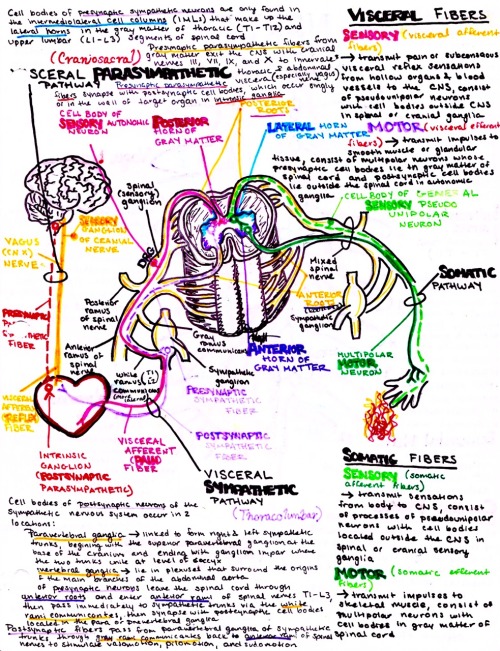 Cell bodies of presynaptic sympathetic neurons are only found in
the intermediolateral cell columns (IMLs) that make up the
lateral horns in the gray matter of thoracic (T1-T12) and
upper lumbar (L1-L3) segments of spinal cord
(Craniosacral)
Presynaptic parasympathetic fibers from
gray matter exit the CNS with cranial
nerves III, VII, IX, and X to innervate
thoracic & abdominal
viscera (especially vagus)
SCERAL PARASYMPATHETIC
PATHWAY
Presynaptic parasympathetic
fibers synapse with postsynaptic cell bodies, which occur singly
or in the wall of target organ in intrinsic ganglia
CELL BODY OF
SENSORY AUTONOMIC
NEURON
POSTERIOR
HORN OF
GRAY MATTER
POSTERIOR
ROOTS
LATERAL HORN
OF GRAY MATTER
VISCERAL FIBERS
SENSORY (visceral afferent
fibers)
→ transmit pain or subconscious
visceral reflex sensations
from hollow organs & blood
vessels to the CNS, consist
of pseudounipolar neurons
with cell bodies outside CNS
in spinal or cranial ganglia
MOTOR (visceral efferent
fibers) → transmit impulses to
smooth muscle or glandular
tissue, consist of multipolar neurons whose
presynaptic cell bodies lie in gray matter of
spinal cord and postsynaptic cell bodies
lie outside the spinal cord in autonomic
ganglia
CELL BODY OF GENERAL
SENSORY PSEUDO
UNIPOLAR
NEURON
Spinal
(sensory)
ganglion
SENSORY
GANGLION
OF CRANIAL
NERVE
DRG
VAGUS
(CN X)
NERVE
Mixed
spinal
nerve
SOMATIC
PATHWAY
PRESYNAPTIC
FIBER
Posterior
ramus of
spinal
nerve
ANTERIOR
ROOTS
Sympathetic
ganglion
Anterior
ramus of
spinal
nerve
Gray
ramus
communicans
ANTERIOR
HORN OF
GRAY MATTER
White
ramus
communicans
Sympathetic
ganglion
MULTIPOLAR
MOTOR
NEURON
PRESYNAPTIC
SYMPATHETIC
FIBER
VISCERAL
AFFERENT
REFLEX
FIBER
POSTSYNAPTIC
SYMPATHETIC
FIBER
VISCERAL
AFFERENT
PAIN
FIBER
INTRINSIC
GANGLION
(POSTSYNAPTIC
PARASYMPATHETIC)
VISCERAL
SYMPATHETIC
PATHWAY
(Thoracolumbar)
SOMATIC FIBERS
SENSORY (somatic
afferent fibers)
→ transmit sensations
from body to CNS, consist
of processes of pseudounipolar
neurons with cell bodies
located outside the CNS in
spinal or cranial sensory
ganglia
MOTOR (somatic efferent
fibers)
→ transmit impulses to
skeletal muscle, consist of
multipolar neurons with
cell bodies in gray matter of
spinal cord
Cell bodies of postsynaptic neurons of the
sympathetic nervous system occur in 2
locations:
Paravertebral ganglia → linked to form right & left sympathetic
trunks, beginning with the superior paravertebral ganglion at the
base of the cranium and ending with ganglion impar where
the two trunks unite at level of coccyx
vertebral ganglia → lie in plexuses that surround the origins
of the main branches of the abdominal aorta
of presynaptic neurons leave the spinal cord through
anterior roots and enter anterior rami of spinal nerves T1-L3,
then pass immediately to sympathetic trunks via the white
rami communicantes, then synapse with postsynaptic cell bodies
located in the para or prevertebral ganglia
Postsynaptic fibers pass from paravertebral ganglia of sympathetic
trunks through gray rami communicantes back to anterior rami of spinal
nerves to stimulate vasomotion, pilomotion, and sudomotion